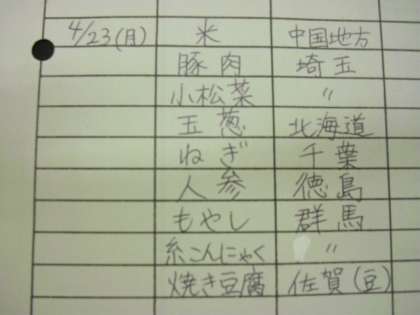 4/23(月) 米 中国地方
豚肉 埼玉
小松菜 〃
玉葱 北海道
ねぎ 千葉
人参 徳島
もやし 群馬
糸こんにゃく 〃
焼き豆腐 佐賀(豆)